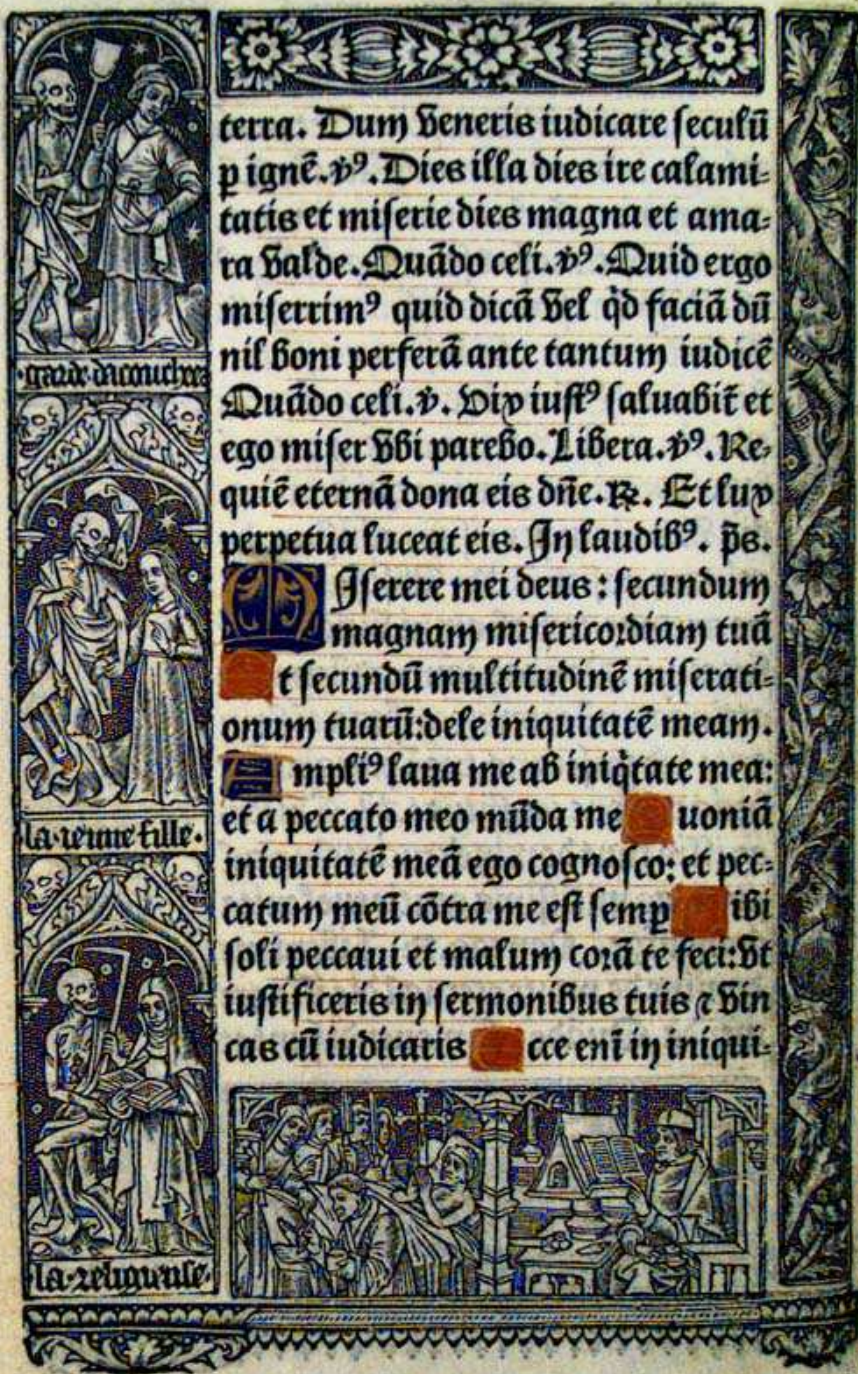 terra. Dum veneris iudicare seculū
p ignē. v⁹. Dies illa dies ire calami=
tatis et miserie dies magna et ama=
ra valde. Quādo celi. v⁹. Quid ergo
miserrim⁹ quid dicā vel qd faciā dū
nil boni perferā ante tantum iudicē
Quādo celi. v. Vix iust⁹ saluabit et
ego miser vbi parebo. Libera. v⁹. Re=
quiē eternā dona eis dñe. R. Et lux
perpetua luceat eis. In laudib⁹. ps.
MIserere mei deus: secundum
magnam misericordiam tuā
t secundū multitudinē miserati=
onum tuarū: dele iniquitatē meam.
Ampli⁹ laua me ab iniqtate mea:
et a peccato meo mūda me uoniā
iniquitatē meā ego cognosco: et pec=
catum meū cōtra me est semp ibi
soli peccaui et malum corā te feci: vt
iustificeris in sermonibus tuis ⁊ vin
cas cū iudicaris cce enī in iniqui=
garde dacouchee
la ieune fille.
la religieuse.